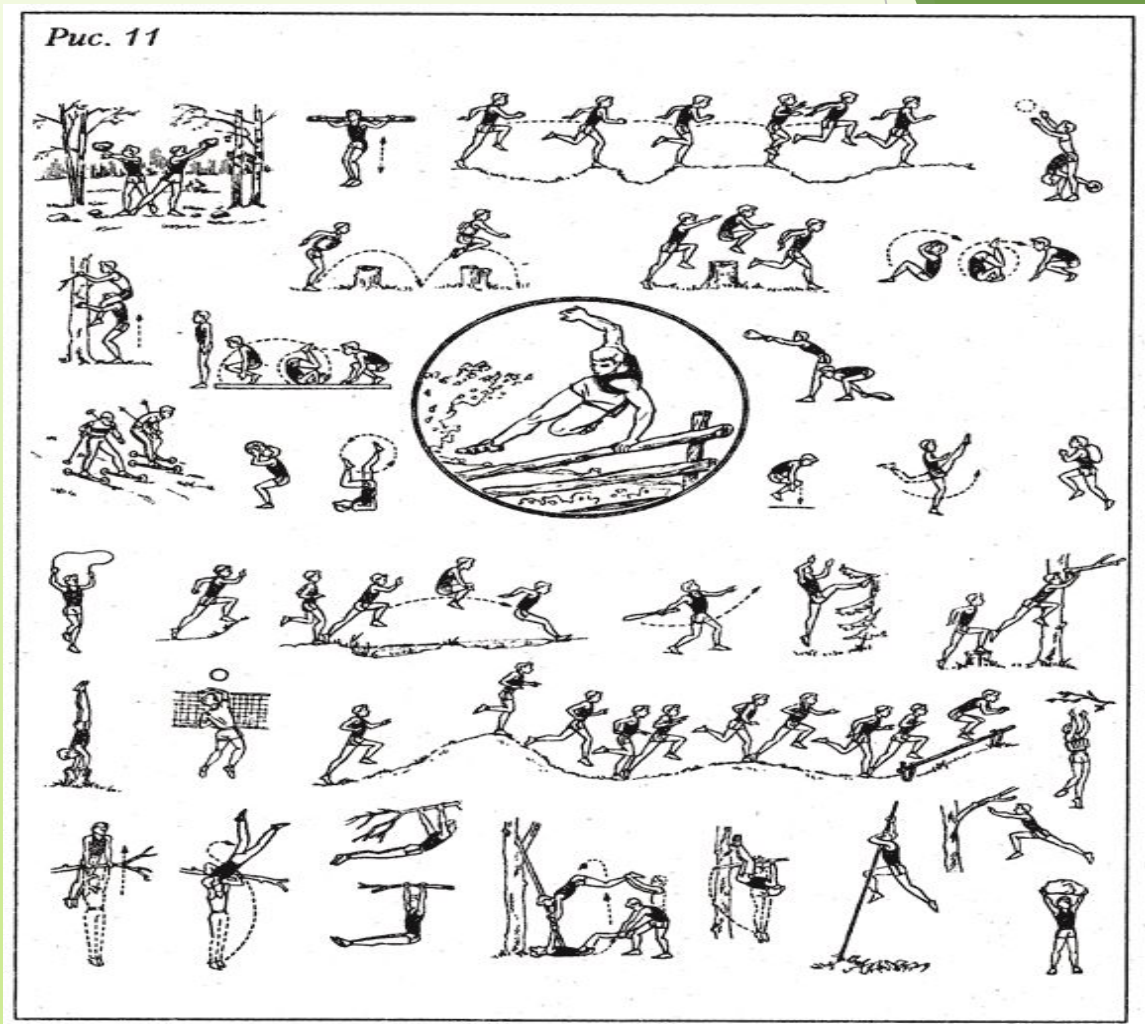 Рис. 11